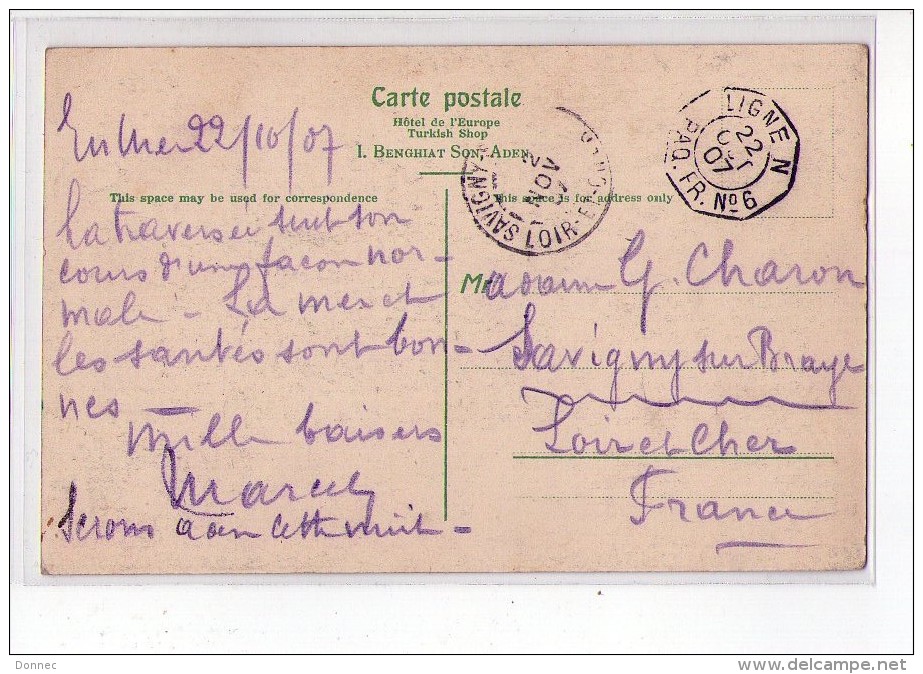 Carte postale
Hôtel de l'Europe
Turkish Shop
I. BENGHIAT SON, ADEN
This space may be used for correspondence
This space is for address only
LIGNE N
PAQ. FR. Nº 6
22
OCT
07
SAVIGNY-
LOIR-ET-CHER
2
NOV
En Mer 22/10/07
La traversée suit son
cours d'une façon nor-
male - La mer et
les santés sont bon-
nes -
Mille baisers
Marcel
Serons à Aden cette nuit -
Madame G. Charon
Savigny sur Braye
Loir et Cher
France
Donnec
www.delcampe.net